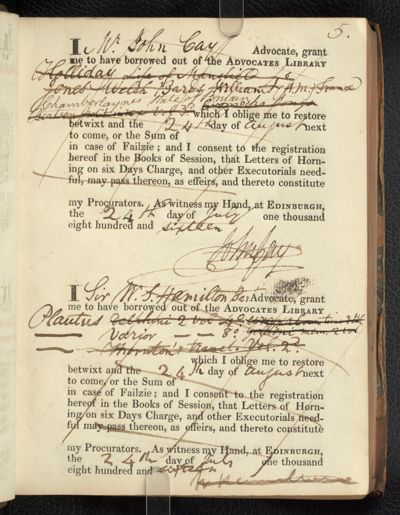 5.
I Mr John Cay Advocate, grant
me to have borrowed out of the ADVOCATES LIBRARY
Holliday Life of Mansfield
Jones Welsh Bards William
Chamberlaynes State of
which I oblige me to restore
betwixt and the 24th day of August next
to come, or the Sum of
in case of Failzie; and I consent to the registration
hereof in the Books of Session, that Letters of Horn-
ing on six Days Charge, and other Executorials need-
ful, may pass thereon, as effeirs, and thereto constitute
my Procurators. As witness my Hand, at EDINBURGH,
the 24th day of July one thousand
eight hundred and sixteen
John Cay
I Sir W. S. Hamilton Bar Advocate, grant
me to have borrowed out of the ADVOCATES LIBRARY
Plautus 2 vol 4o
Varior 8o
Thornton's Vol. 2.
which I oblige me to restore
betwixt and the 24th day of August next
to come, or the Sum of
in case of Failzie; and I consent to the registration
hereof in the Books of Session, that Letters of Horn-
ing on six Days Charge, and other Executorials need-
ful may pass thereon, as effeirs, and thereto constitute
my Procurators. As witness my Hand, at EDINBURGH,
the 24th day of July one thousand
eight hundred and sixteen